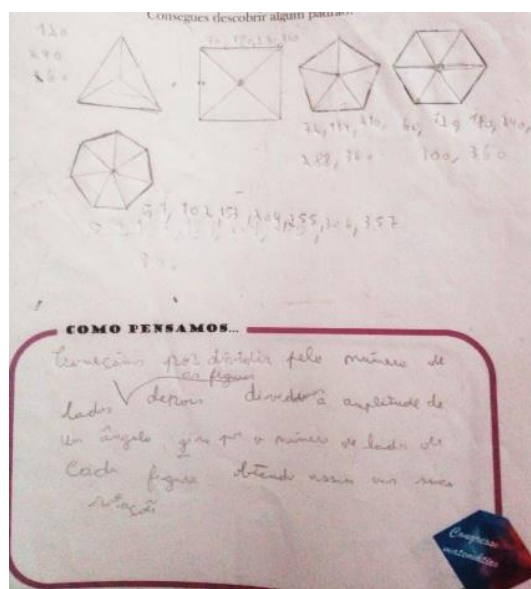 Consegues descobrir algum padrão?
120
240
360
90, 180, 270, 360
72, 144, 216,
288, 360
60, 120, 180, 240,
300, 360
51, 102, 153, 204, 255, 306, 357
COMO PENSAMOS...
Começamos por dividir pelo número de
as figuras
lados depois a amplitude de
um ângulo giro por o número de lados de
cada figura obtendo assim as suas
rotações
Congresso
matemático